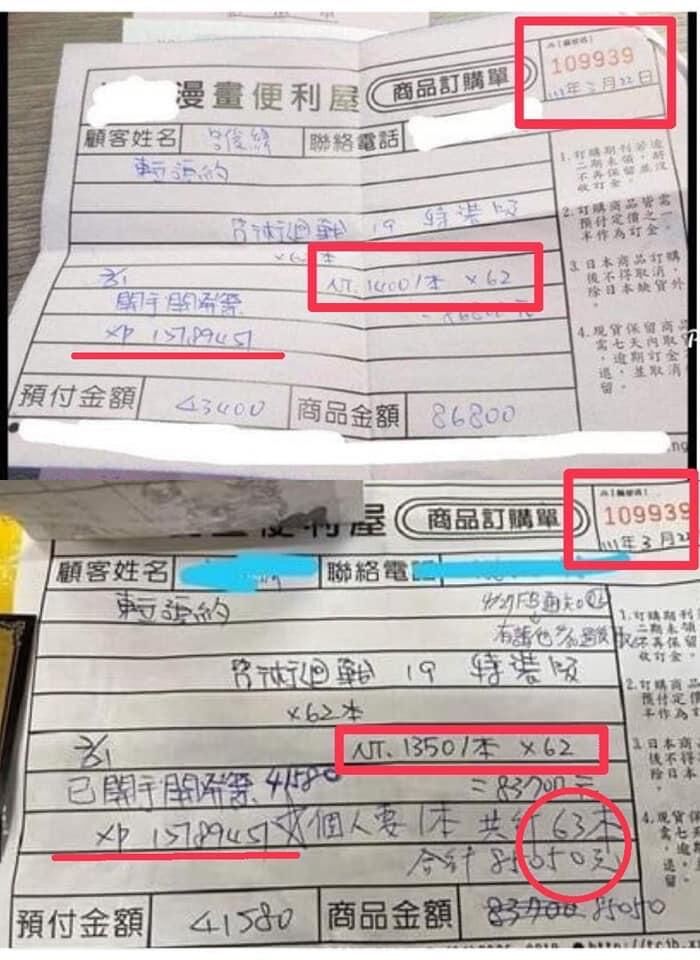 漫畫便利屋 商品訂購單
109939
111年3月22日
顧客姓名
聯絡電話
轉預約
咒術迴戰 19 特裝版
×62本
NT.1400/本 ×62
3/1
開手開發票
XP 15789451
預付金額 43400 商品金額 86800
1.訂購期刊若逾二期未領,將不再保留並沒收訂金。
2.訂購商品皆需預付定價之一半作為訂金。
3.日本商品訂購後不得取消,除日本缺貨外
4.現貨保留商品需七天內取,逾期訂金不退,並取消保留。
便利屋 商品訂購單
109939
111年3月22
顧客姓名
聯絡電話
轉預約
4/27FB通知
咒術迴戰 19 特裝版
×62本
NT.1350/本 ×62
3/1
=83700元
已開手開發票 41580
XP 15789451
個人要1本 共訂63本
合計85050元
預付金額 41580 商品金額 83700 85050
1.訂購期刊
二期未領
不再保留
收訂金。
2.訂購商品
預付定價
半作為訂
3.日本商
後不得
除日本
4.現貨保